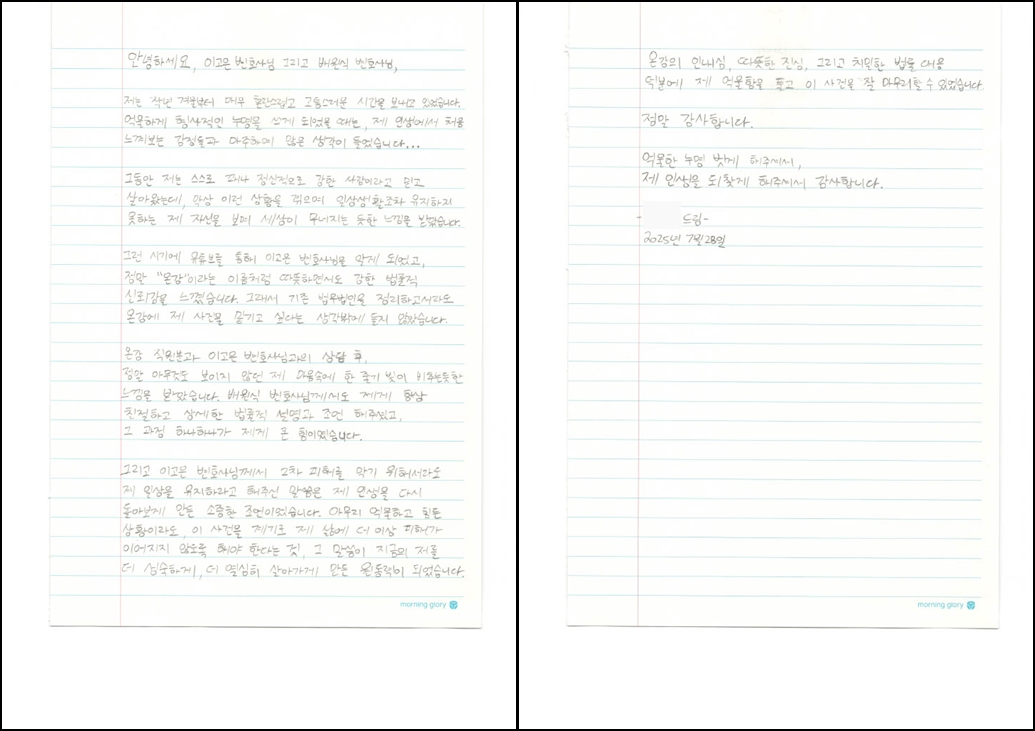 안녕하세요, 이고은 변호사님 그리고 배원식 변호사님,
저는 작년 겨울부터 매우 혼란스럽고 고통스러운 시간을 보내고 있었습니다.
억울하게 형사적인 누명을 쓰게 되었을 때는, 제 인생에서 처음
느껴보는 감정들과 마주하며 많은 생각이 들었습니다...
그동안 저는 스스로 꽤나 정신적으로 강한 사람이라고 믿고
살아왔는데, 막상 이런 상황을 겪으며 일상생활조차 유지하지
못하는 제 자신을 보며 세상이 무너지는 듯한 느낌을 받았습니다.
그런 시기에 유튜브를 통해 이고은 변호사님을 알게 되었고,
정말 "온강"이라는 이름처럼 따뜻하면서도 강한 법률적
신뢰감을 느꼈습니다. 그래서 기존 법무법인을 정리하고서라도
온강에 제 사건을 맡기고 싶다는 생각밖에 들지 않았습니다.
온강 직원분과 이고은 변호사님과의 상담 후,
정말 아무것도 보이지 않던 제 마음속에 한 줄기 빛이 비추는듯한
느낌을 받았습니다. 배원식 변호사님께서도 제게 항상
친절하고 상세한 법률적 설명과 조언 해주셨고,
그 과정 하나하나가 제게 큰 힘이었습니다.
그리고 이고은 변호사님께서 2차 피해를 막기 위해서라도
제 일상을 유지하라고 해주신 말씀은 제 인생을 다시
돌아보게 만든 소중한 조언이었습니다. 아무리 억울하고 힘든
상황이라도, 이 사건을 계기로 제 삶에 더 이상 피해가
이어지지 않도록 해야 한다는 것, 그 말씀이 지금의 저를
더 성숙하게, 더 열심히 살아가게 만든 원동력이 되었습니다.
morning glory
온강의 인내심, 따뜻한 진심, 그리고 치밀한 법률 대응
덕분에 제 억울함을 풀고 이 사건을 잘 마무리할 수 있었습니다.
정말 감사합니다.
억울한 누명 벗게 해주셔서,
제 인생을 되찾게 해주셔서 감사합니다.
- 드림-
2025년 7월 28일
morning glory